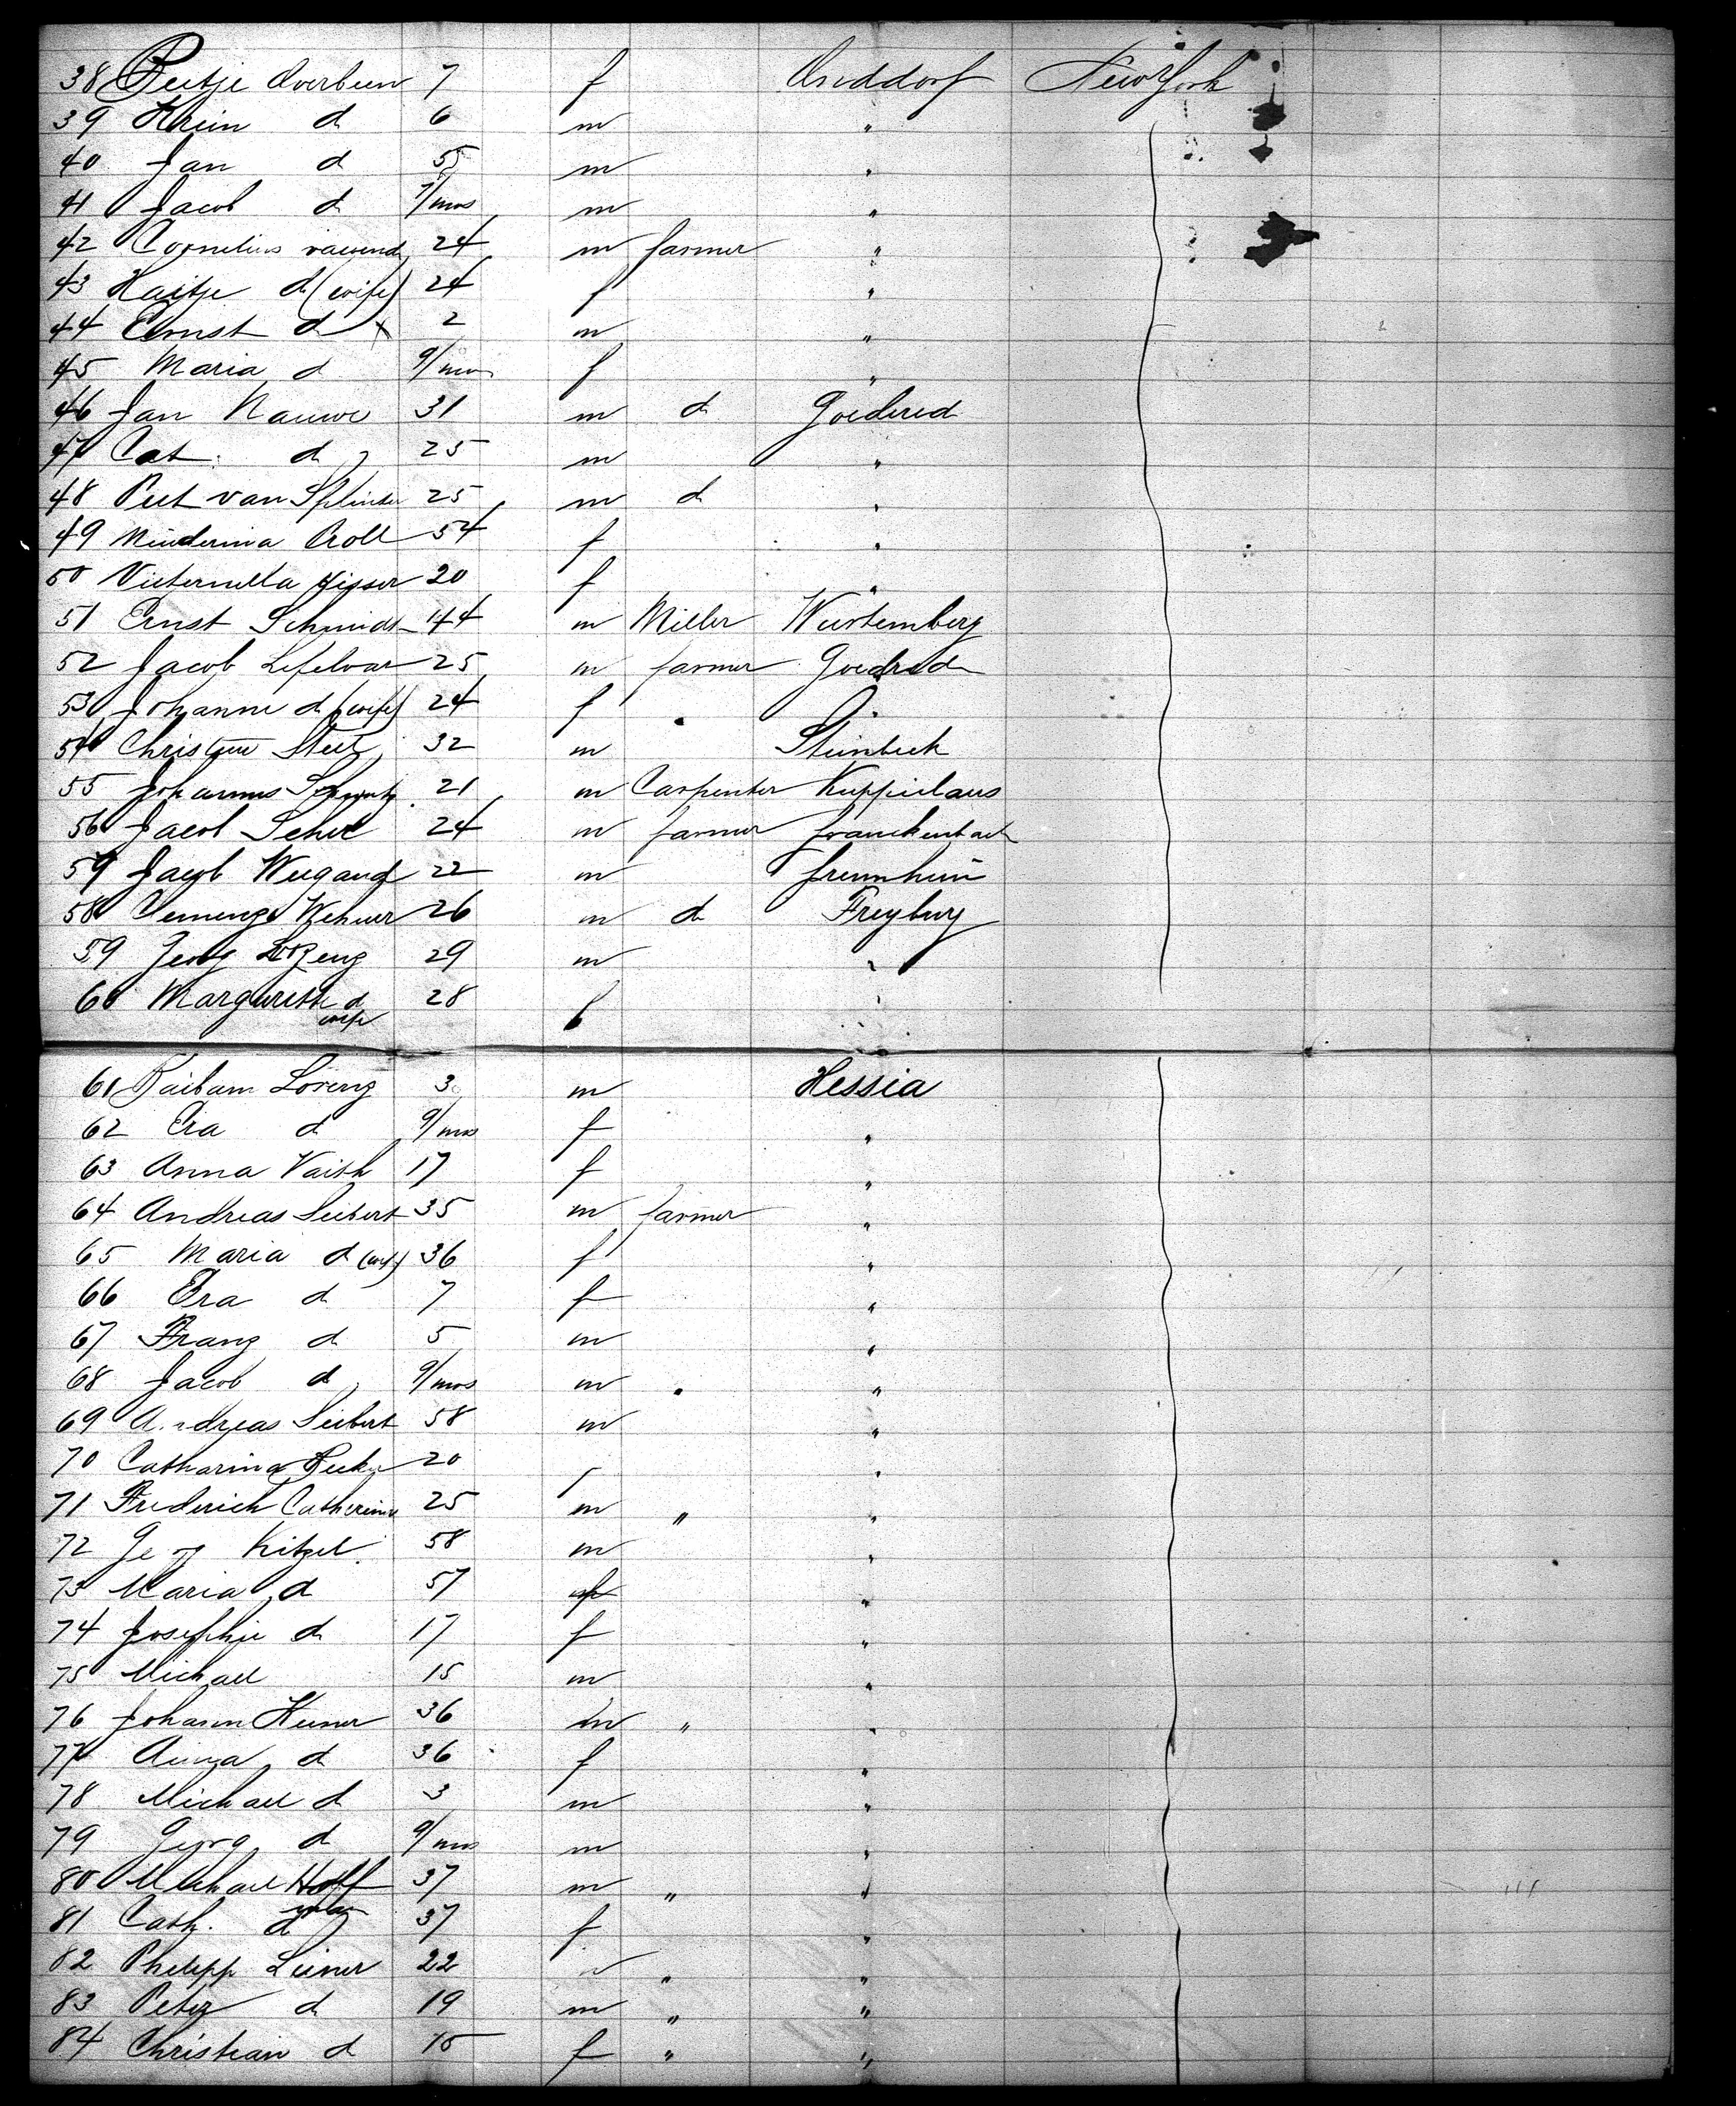 38 Peetje Overbeen 7 f Ouddorf New York
39 Krein d 6 m "
40 Jan d 55 m "
41 Jacob d 7/mos m "
42 Cornelius 24 m farmer "
43 d (wife) 24 f "
44 Ernst d x 2 m "
45 Maria d 9/mos f "
46 Jan Nauwe 31 m d Goedered
47 Cat: d 25 m "
48 Peet van Splinter 25 m d "
49 Kroll 54 f "
50 Visser 20 f "
51 Ernst Schmidt 44 m Miller Wurtemberg
52 Jacob Lefelvar 25 m farmer Goedred
53 Johanne d (wife) 24 f "
54 Steet 32 m Steinbeck
55 Johannes 21 m Carpenter
56 Jacob 24 m farmer franckenbach
59 Jacob Weigand 22 m
58 26 m d Freyburg
59 Georg 29 m "
60 Margareth d wife 28 f "
61 Lorenz 3 m Hessia
62 Eva d 9/mos f "
63 Anna Vaith 17 f "
64 Andreas Seibert 35 m farmer "
65 Maria d (wife) 36 f "
66 Eva d 7 f "
67 Franz d 5 m "
68 Jacob d 9/mos m "
69 Andreas Seibert 58 m "
70 Catharina 20 f "
71 Frederich Catherina 25 m " "
72 Georg Kitzel 58 m "
73 Maria d 57 f "
74 Josephie d 17 f "
75 Michael 15 m "
76 Johann 36 m " "
77 Anna d 36 f "
78 Michael d 3 m "
79 Georg d 9/mos m "
80 Michael Hoff 37 m " "
81 Cath. d 37 f "
82 Philipp Leiner 22 m " "
83 Peter d 19 m " "
84 Christian d 15 f " "